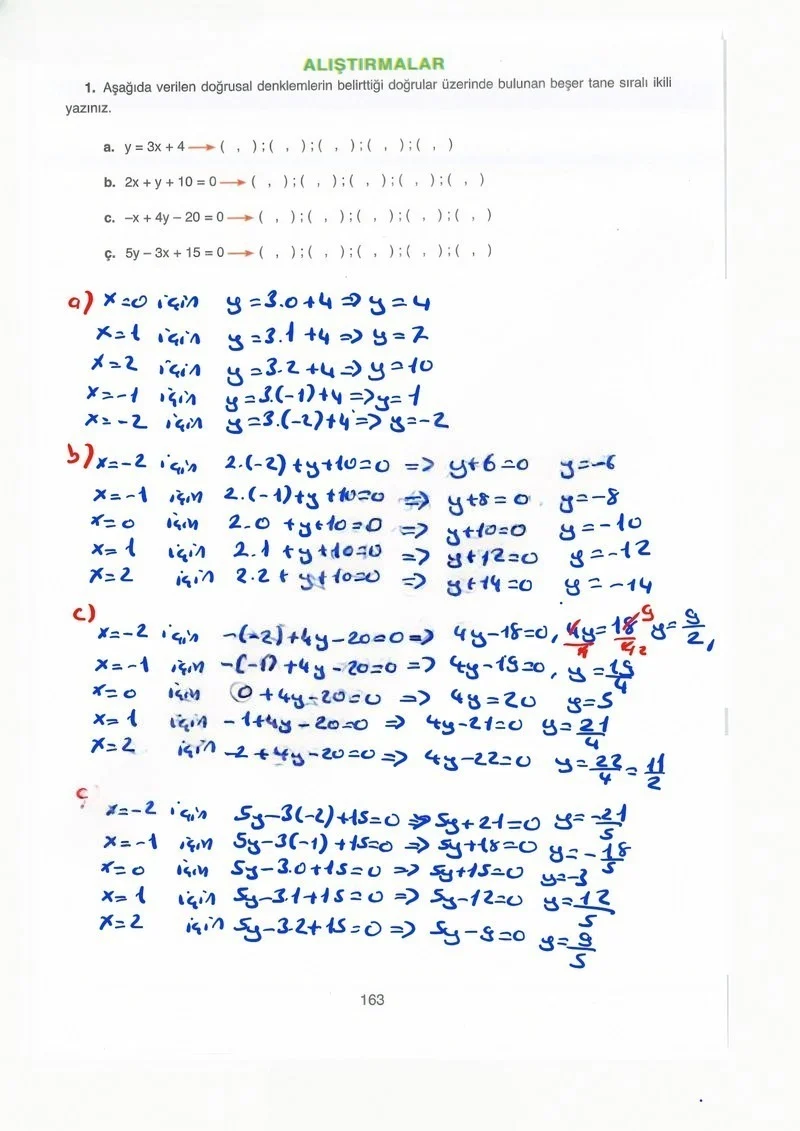 ALIŞTIRMALAR
1. Aşağıda verilen doğrusal denklemlerin belirttiği doğrular üzerinde bulunan beşer tane sıralı ikili
yazınız.
a. y = 3x + 4 → ( , );( , );( , );( , );( , )
b. 2x + y + 10 = 0 → ( , );( , );( , );( , );( , )
c. –x + 4y – 20 = 0 → ( , );( , );( , );( , );( , )
ç. 5y – 3x + 15 = 0 → ( , );( , );( , );( , );( , )
a) x=0 için y=3.0+4 => y=4
x=1 için y=3.1+4 => y=7
x=2 için y=3.2+4 => y=10
x=-1 için y=3.(-1)+4 => y=1
x=-2 için y=3.(-2)+4 => y=-2
b) x=-2 için 2.(-2)+y+10=0 => y+6=0 y=-6
x=-1 için 2.(-1)+y+10=0 => y+8=0 y=-8
x=0 için 2.0+y+10=0 => y+10=0 y=-10
x=1 için 2.1+y+10=0 => y+12=0 y=-12
x=2 için 2.2+y+10=0 => y+14=0 y=-14
c)
x=-2 için -(-2)+4y-20=0 => 4y-18=0, 4y/4=18/4 9 2 y=9/2,
x=-1 için -(-1)+4y-20=0 => 4y-19=0, y=19/4
x=0 için 0+4y-20=0 => 4y=20 y=5
x=1 için -1+4y-20=0 => 4y-21=0 y=21/4
x=2 için -2+4y-20=0 => 4y-22=0 y=22/4=11/2
ç
x=-2 için 5y-3(-2)+15=0 => 5y+21=0 y=-21/5
x=-1 için 5y-3(-1)+15=0 => 5y+18=0 y=-18/5
x=0 için 5y-3.0+15=0 => 5y+15=0 y=-3
x=1 için 5y-3.1+15=0 => 5y-12=0 y=12/5
x=2 için 5y-3.2+15=0 => 5y-9=0 y=9/5
163